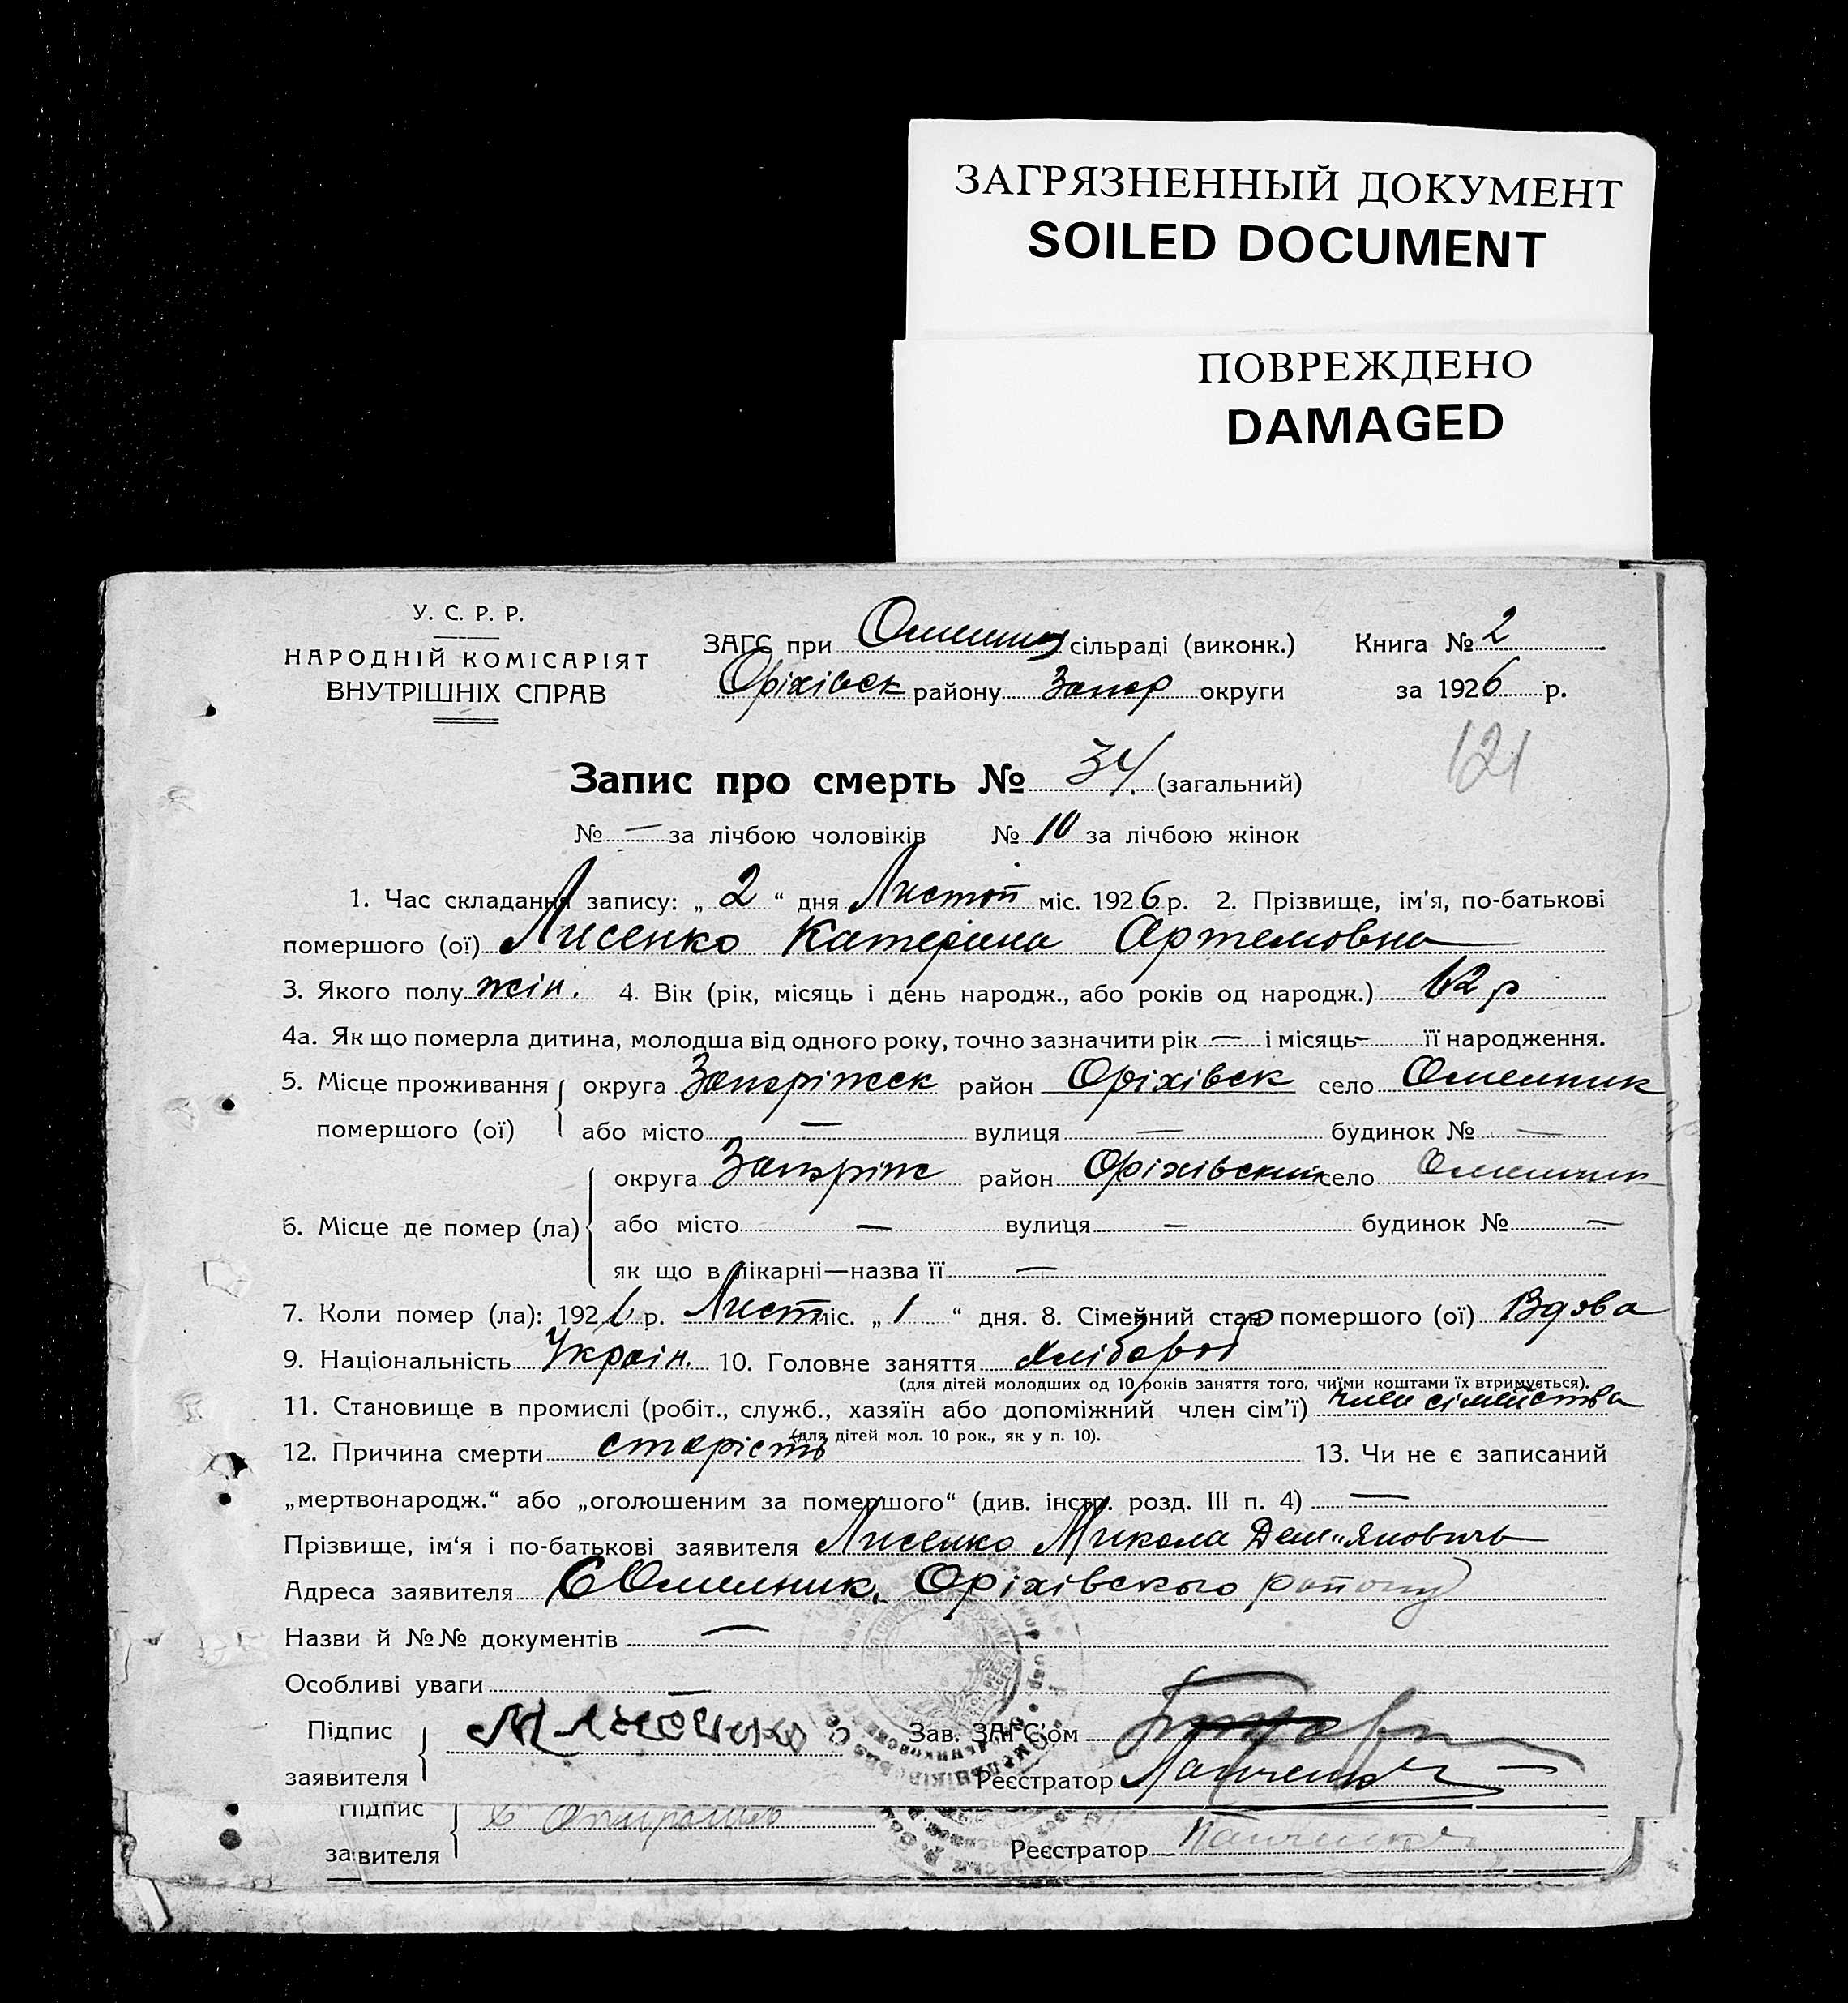 ЗАГРЯЗНЕННЫЙ ДОКУМЕНТ
SOILED DOCUMENT
ПОВРЕЖДЕНО
DAMAGED
У. С. Р. Р.
НАРОДНІЙ КОМІСАРІЯТ
ВНУТРІШНІХ СПРАВ
ЗАГС при сільраді (виконк.)
Оріхівск району Запор округи
Книга № 2
за 1926 р.
121
Запис про смерть № 34. (загальний)
№ — за лічбою чоловіків № 10 за лічбою жінок
1. Час складання запису: „ 2 “ дня Листоп міс. 1926 р. 2. Прізвище, ім'я, по-батькові
помершого (ої) Лисенко Катерина Артемовна
3. Якого полу жін. 4. Вік (рік, місяць і день народж., або років од народж.) 62 р
4а. Як що померла дитина, молодша від одного року, точно зазначити рік — і місяць — її народження.
5. Місце проживання округа Запоріжск район Оріхівск село Омельник
помершого (ої) або місто — вулиця — будинок № —
округа Запоріж район Оріхівский село Омельник
6. Місце де помер (ла) або місто — вулиця — будинок № —
як що в лікарні—назва її —
7. Коли помер (ла): 1926 р. Лист міс. „ 1 “ дня. 8. Сімейний стан помершого (ої) Вдова
9. Національність Україн. 10. Головне заняття Хлібороб
(для дітей молодших од 10 років заняття того, чиїми коштами їх втримується).
11. Становище в промислі (робіт., служб., хазяїн або допоміжний член сім'ї) член сімейства
(для дітей мол. 10 рок., як у п. 10).
12. Причина смерти старість 13. Чи не є записаний
„мертвонародж.“ або „оголошеним за помершого“ (див. інстр. розд. III п. 4) —
Прізвище, ім'я і по-батькові заявителя Лисенко Микола Дем"янович
Адреса заявителя С Омельник, Оріхівского району
Назви й №№ документів —
Особливі уваги —
Підпис
заявителя
М Лисенко
Зав. ЗАГС'ом
Реєстратор Панченко
Підпис
заявителя
Реєстратор Панченко